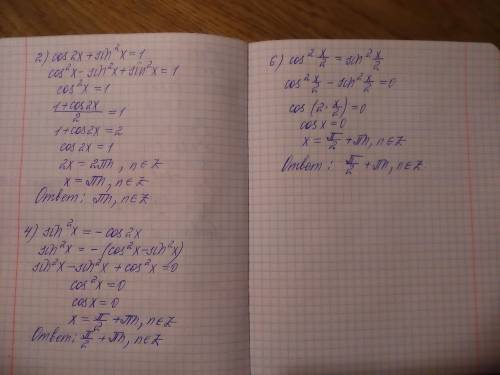 2) cos2x + sin²x = 1
cos²x - sin²x + sin²x = 1
cos²x = 1
(1+cos2x)/2 = 1
1 + cos2x = 2
cos2x = 1
2x = 2πn, n∈Z
x = πn, n∈Z
Ответ: πn, n∈Z
4) sin²x = -cos2x
sin²x = -(cos²x - sin²x)
sin²x - sin²x + cos²x = 0
cos²x = 0
cosx = 0
x = π/2 + πn, n∈Z
Ответ: π/2 + πn, n∈Z
6) cos² x/2 = sin² x/2
cos² x/2 - sin² x/2 = 0
cos(2·x/2) = 0
cosx = 0
x = π/2 + πn, n∈Z
Ответ: π/2 + πn, n∈Z